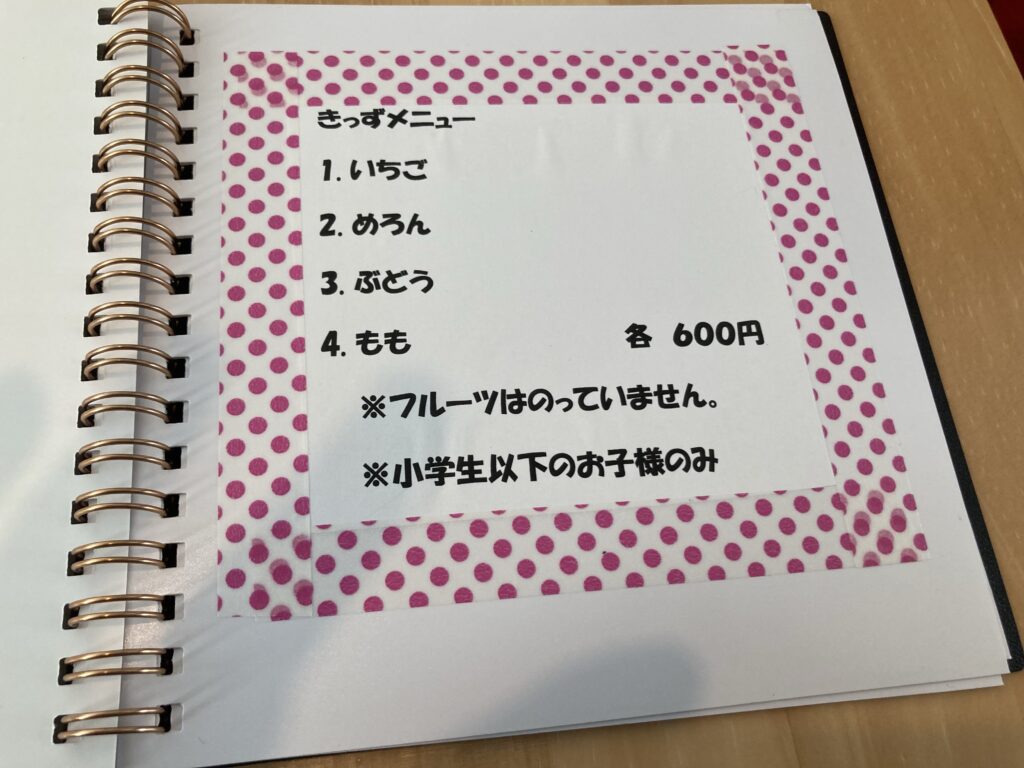 きっずメニュー
1. いちご
2. めろん
3. ぶどう
4. もも 各 600円
※フルーツはのっていません。
※小学生以下のお子様のみ